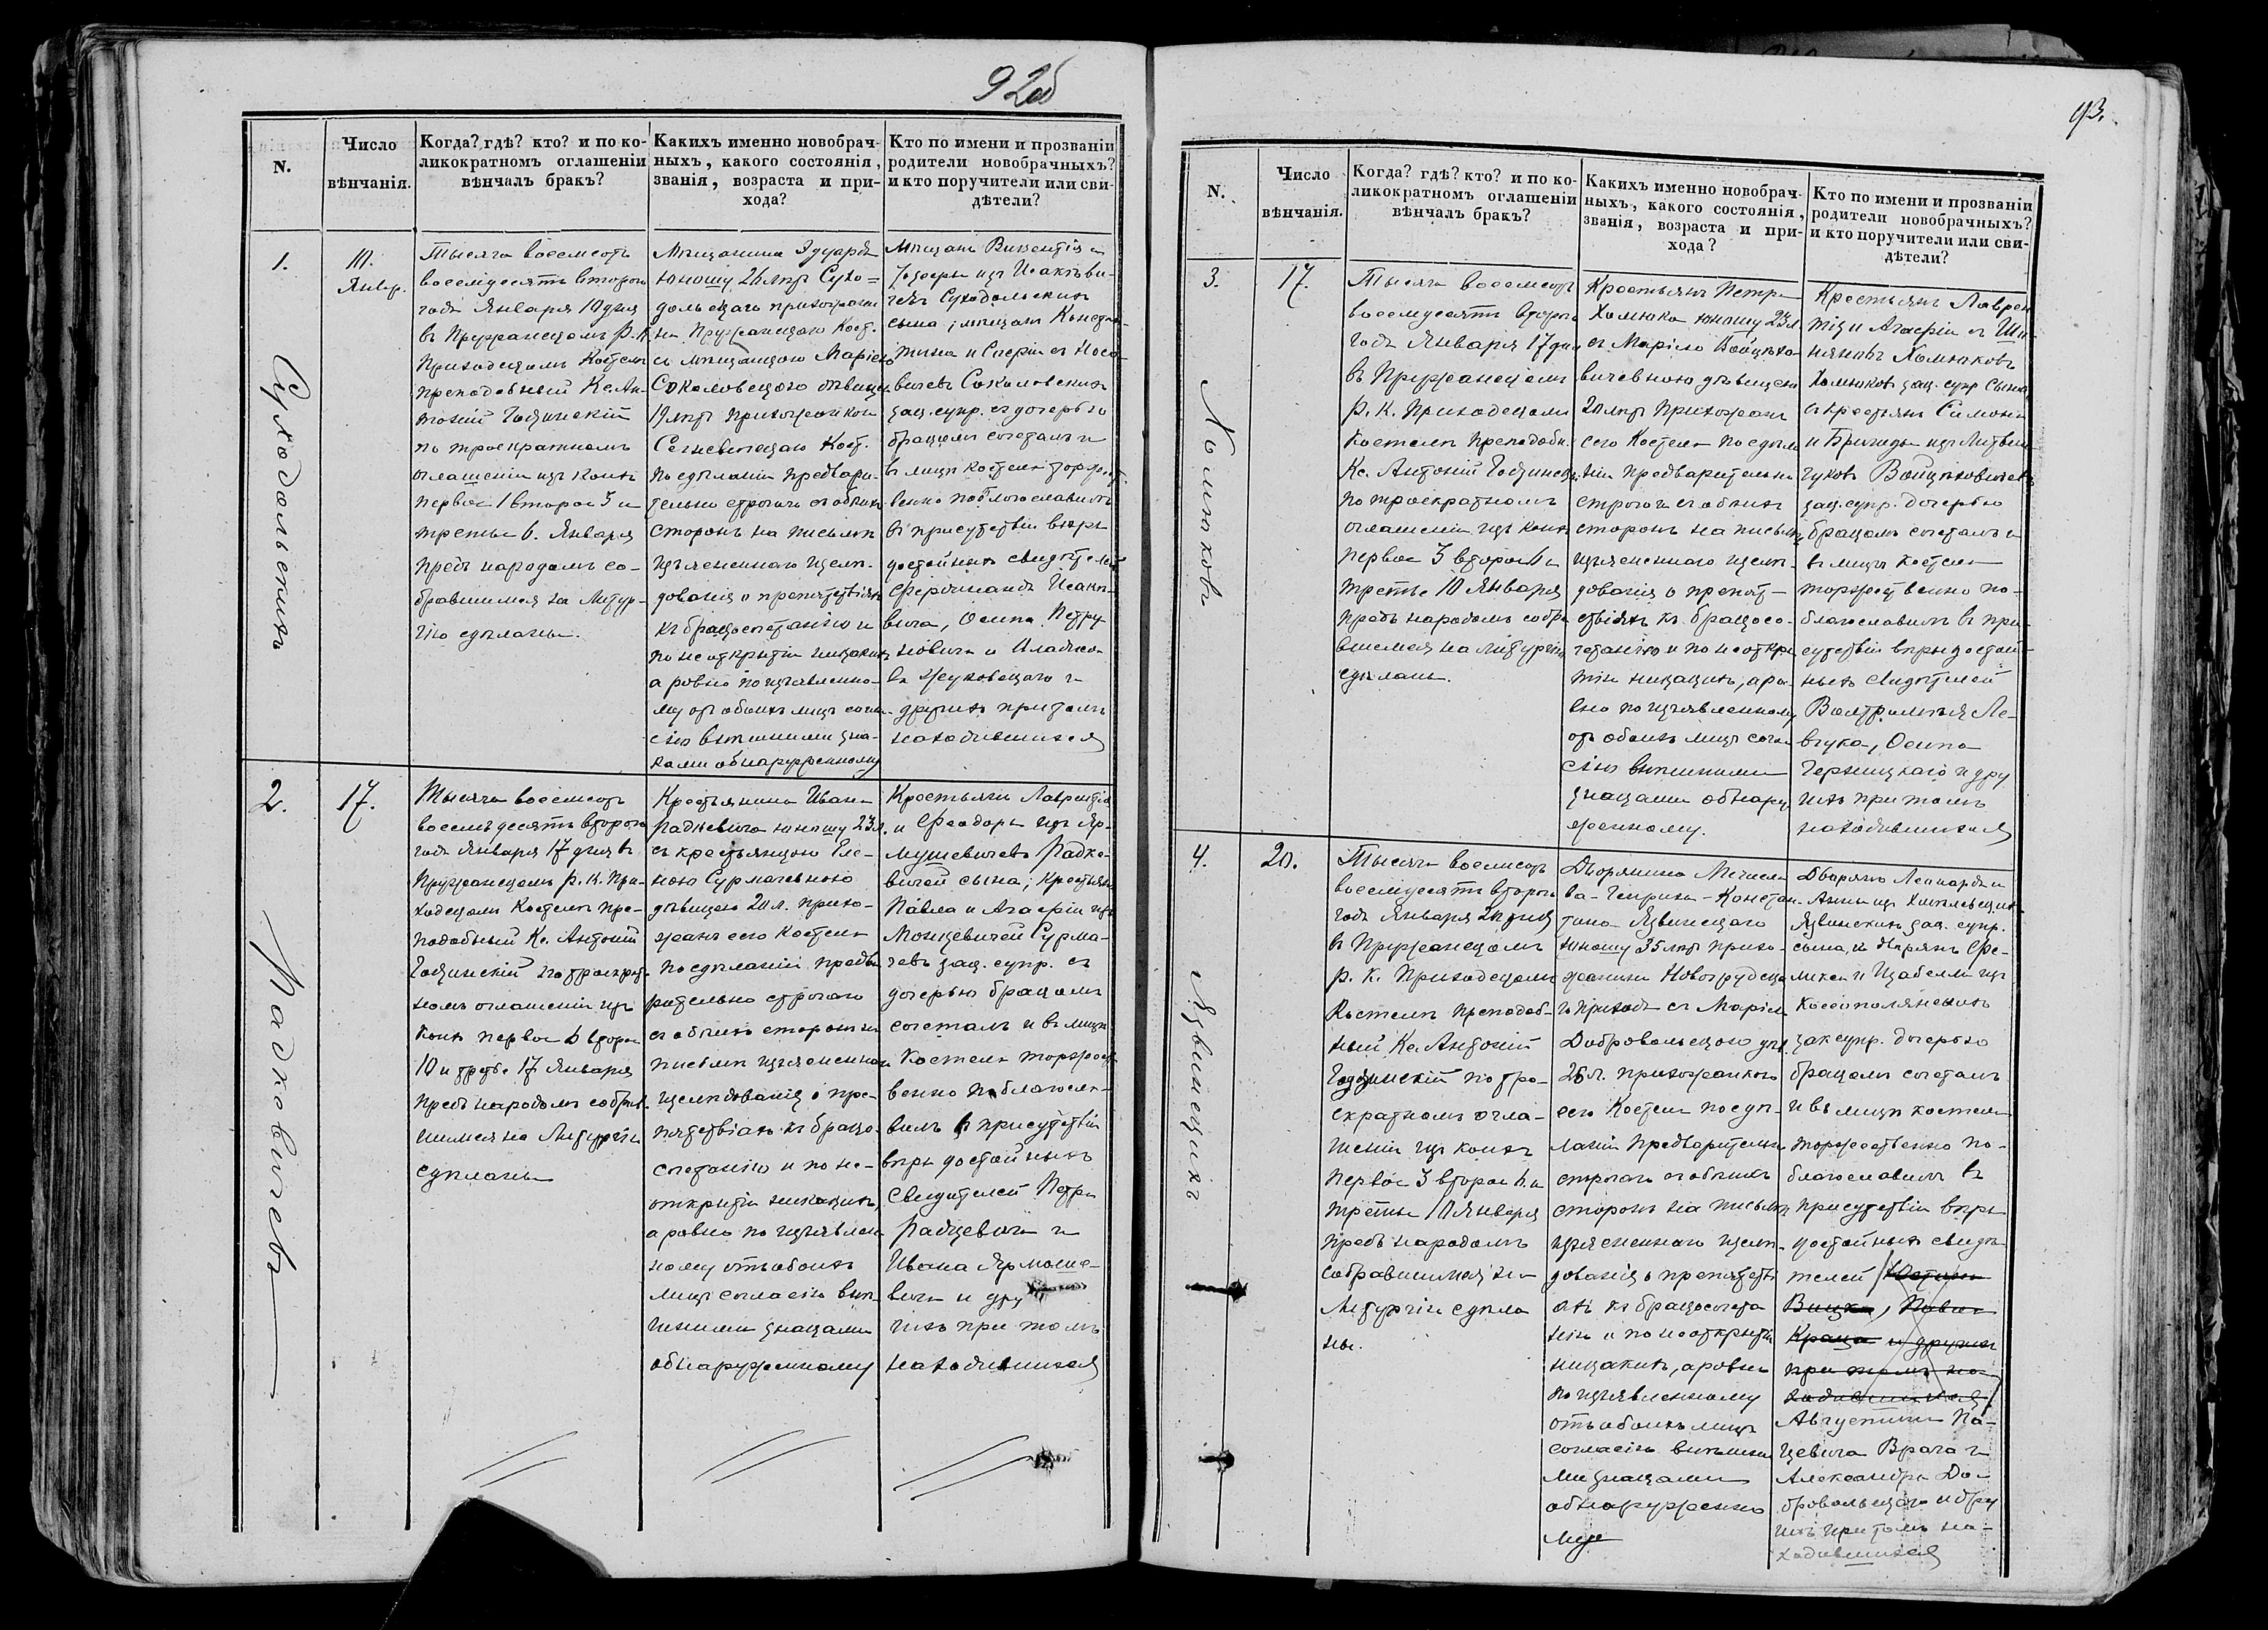 92об
N.
Число
вѣнчанія.
Когда? гдѣ? кто? и по ко-
ликократномъ оглашеніи
вѣнчалъ бракъ?
Какихъ именно новобрач-
ныхъ, какого состоянія,
званія, возраста и при-
хода?
Кто по имени и прозваніи
родители новобрачныхъ?
и кто поручители или сви-
дѣтели?
1.
Суходольскихъ
10.
Янвр.
Тысяча восемсотъ
восемдесятъ второго
года Января 10 дня
въ Пружанскомъ Р. К.
Приходскомъ Костелѣ
преподобный Кс. Ан-
тоній Годзинскій
по троекратномъ
оглашеніи изъ коихъ
первое 1 второе 3 и
третье 6. Января
предъ народомъ со-
бравшимся на Литур-
гію сдѣланы.
Мѣщанина Эдуарда
юношу 26 лѣтъ Сухо-
дольскаго прихожани-
на Пружанскаго Кост.
съ мѣщанкою Маріею
Соколовскою дѣвицею
19 лѣтъ прихожанкою
Сегневицкаго Кост.
по сдѣланіи предвари-
тельно строгаго съ обѣихъ
сторонъ на письмѣ
изъясненнаго изслѣ-
дованія о препятствіяхъ
къ бракосочетанію и
по не открытіи никакихъ
а ровно по изъявленно-
му отъ обоихъ лицъ согла-
сію внѣшними зна-
ками обнаруженному
Мѣщанъ Викентія и
изъ Исакови-
чевъ Суходольскихъ
сына; мѣщанъ Конста-
тина и Софіи съ Носо-
вичевъ Соколовскихъ
зак. супр. съ дочерью
бракомъ сочеталъ и
въ лицѣ костела торжест-
венно поблагословилъ
въ присутствіи вѣры
достойныхъ свидѣтелей
Фердинанда Исако-
вича, Осипа Петру-
новича и Владисла-
ва Жуковскаго и
другихъ притомъ
находившихся
2.
Радкевичевъ
17.
Тысяча восемсотъ
восемьдесятъ второго
года Января 17 дня въ
Пружанскомъ Р. К. При-
ходскомъ Костелѣ пре-
подобный Кс. Антоній
Годзинскій по троекрат-
номъ оглашеніи изъ
коихъ первое 6 второе
10 и третье 17 Января
предъ народомъ собрав-
шимся на Литургію
сдѣланы
Крестьянина Ивана
Радкевича юношу 23 л.
съ крестьянкою Еле-
ною Сурмачевною
дѣвицею 20 л. прихо-
жанъ сего Костела
по сдѣланіи предва-
рительно строгаго
съ обѣихъ сторонъ на
письмѣ изъясненнаго
изслѣдованія о пре-
пятствіяхъ къ брако-
сочетанію и по не-
открытіи никакихъ,
а ровно по изъявлен-
ному отъ обоихъ
лицъ согласію внѣ-
шними знаками
обнаруженному
Крестьянъ Лаврентія
и Феодоры изъ Яр-
мушевичевъ Радке-
вичей сына; крестьянъ
Павла и Агафіи изъ
Монцевичей Сурма-
чевъ зак. супр. съ
дочерью бракомъ
сочеталъ и въ лицѣ
Костела торжест-
венно поблагосло-
вилъ въ присутствіи
вѣры достойныхъ
Свидѣтелей Петра
Радкевича и
Ивана Ярмоше-
вича и дру
гихъ при томъ
находившихся
93.
N.
Число
вѣнчанія.
Когда? гдѣ? кто? и по ко-
ликократномъ оглашеніи
вѣнчалъ бракъ?
Какихъ именно новобрач-
ныхъ, какого состоянія,
званія, возраста и при-
хода?
Кто по имени и прозваніи
родители новобрачныхъ?
и кто поручители или сви-
дѣтели?
3.
Хомюковъ
17.
Тысяча восемсотъ
восемдесятъ второго
года Января 17 дня
въ Пружанскомъ
Р. К. Приходскомъ
Костелѣ преподобн.
Кс. Антоній Годзинскій
по троекратномъ
оглашеніи изъ коихъ
первое 3 второе 6 и
третье 10 Января
предъ народомъ собра
вшемся на литургію
сдѣланы.
Крестьянъ Петра
Хомюка юношу 23 л.
съ Маріею Войцѣхо-
вичевною дѣвицею
20 лѣтъ прихожанъ
сего Костела по сдѣла-
ніи предварительно
строгаго съ обѣихъ
сторонъ на письмѣ
изъясненнаго изслѣ-
дованія о препят-
ствіяхъ къ бракосо-
четанію и по не откры-
тіи никакихъ, а ро-
вно по изъявленному
отъ обоихъ лицъ согла-
сію внѣшними
знаками обнару-
женному.
Крестьянъ Лаврен
тія и Агафіи съ
Хомюковъ
зак. супр. сына
съ крестьянъ Симона
и Бригиды изъ Литвин-
чуковъ Войцѣховичевъ
зак. супр. дочерью
бракомъ сочеталъ и
въ лицѣ костела
торжественно по-
благословилъ въ при-
сутствіи вѣры достой-
ныхъ свидѣтелей
Ле-
вчука, Осипа
Черницкаго и дру
гихъ при томъ
находившихся
4.
Язвинскихъ
20.
Тысяча восемсотъ
восемдесятъ второго
года Января 20 дня
въ Пружанскомъ
Р. К. Приходскомъ
Костелѣ преподоб-
ный Кс. Антоній
Годзинскій по тро-
екратномъ огла-
шеніи изъ коихъ
первое 3 второе 6. и
третье 10 Января
предъ народомъ
собравшимся на
Литургію сдѣла
ны.
Дворянина Мечисла
ва-Генриха-Констан-
тина Язвинскаго
юношу 35 лѣтъ прихо-
жанина Новогрудска-
го прихода съ Маріею
Добровольскою дѣв.
26 л. прихожанкою
сего Костела по сдѣ-
ланіи предварительно
строгаго съ обѣихъ
сторонъ на письмѣ
изъясненнаго изслѣ-
дованія о препятстві
яхъ къ бракосочета
нію и по не открытіи
никакихъ, а ровно
по изъявленному
отъ обоихъ лицъ
согласію внѣшни
ми знаками
обнаруженно
му
Дворянъ Леонарда и
Анны изъ
Язвинскихъ зак. супр.
сына, и дворянъ Фе-
ликса и Изабелли изъ
Коссополянскихъ
зак супр. дочерью
бракомъ сочеталъ
и въ лицѣ костела
торжественно по-
благословилъ въ
присутствіи вѣры
достойныхъ свидѣ-
телей
и другихъ
при томъ на-
ходившихся
Августина По-
цевича Врача и
Александра До-
бровольскаго и дру
гихъ притомъ на-
ходившихся